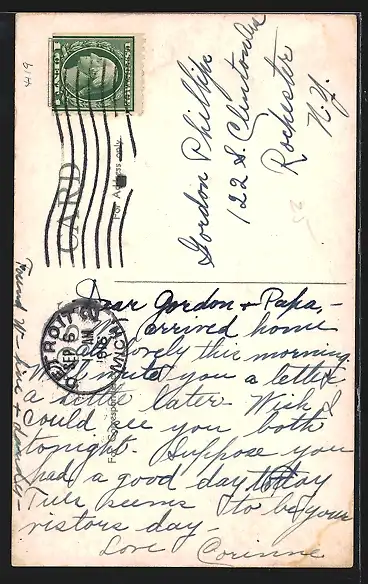 419
CARD
For Address only
Gordon Phillips
122 S. Clinton
Rochester
N.Y.
DETROIT
SEP 5
AM
1916
MICH.
Dear Gordon & Papa,-
arrived home
lovely this morning.
you a letter
a little later. Wish I
could see you both
tonight. Suppose you
had a good day today
Tues seems to be your
visitors day-
Love Corinne
Found W- fine &